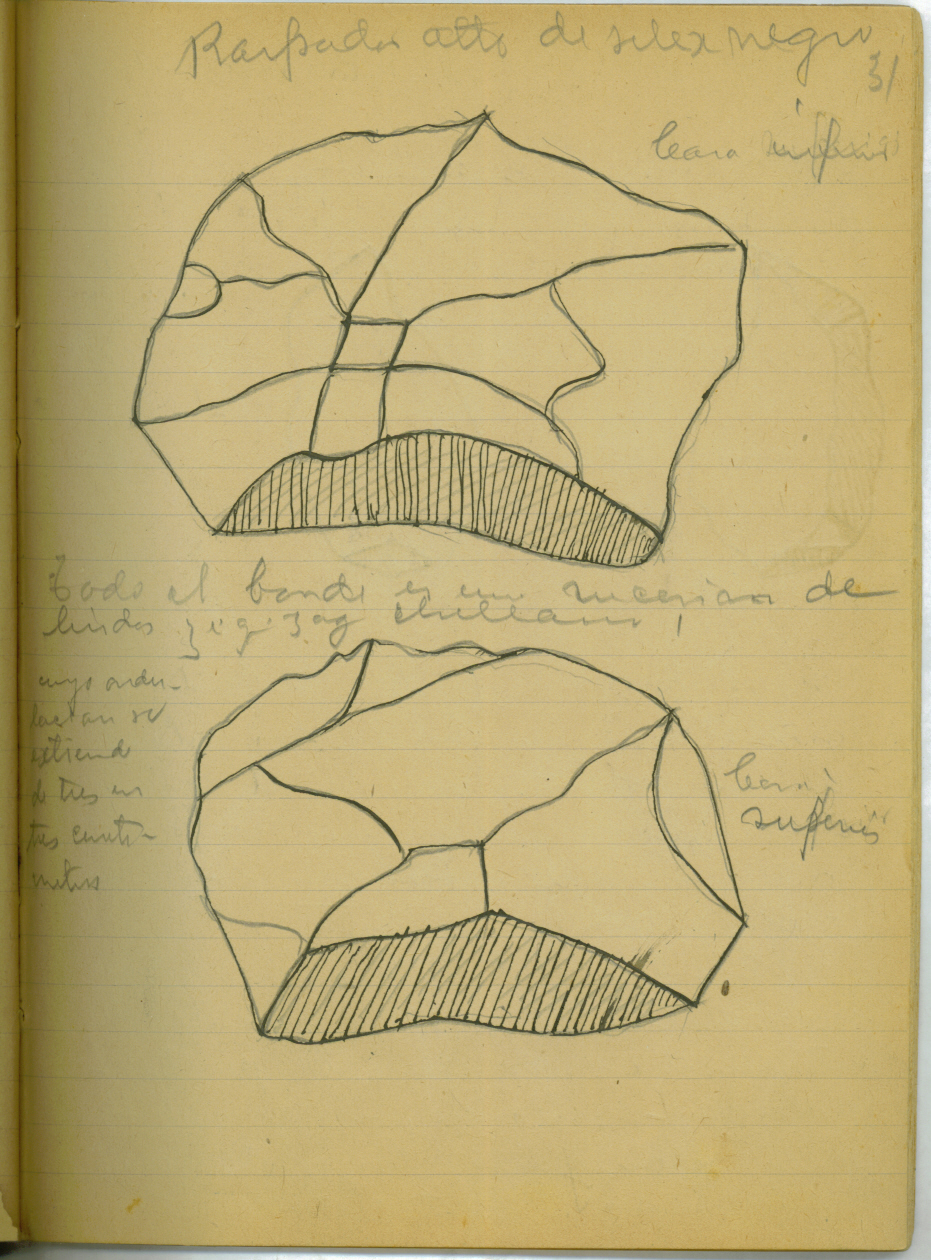 Raspador alto de silex negro
31
Cara inferior
Todo el borde es una sucesion de
lindos zig-zag chelleano
cuyo ondu-
lacion se
extiende
de tres en
tres centi-
metros
Cara
superior